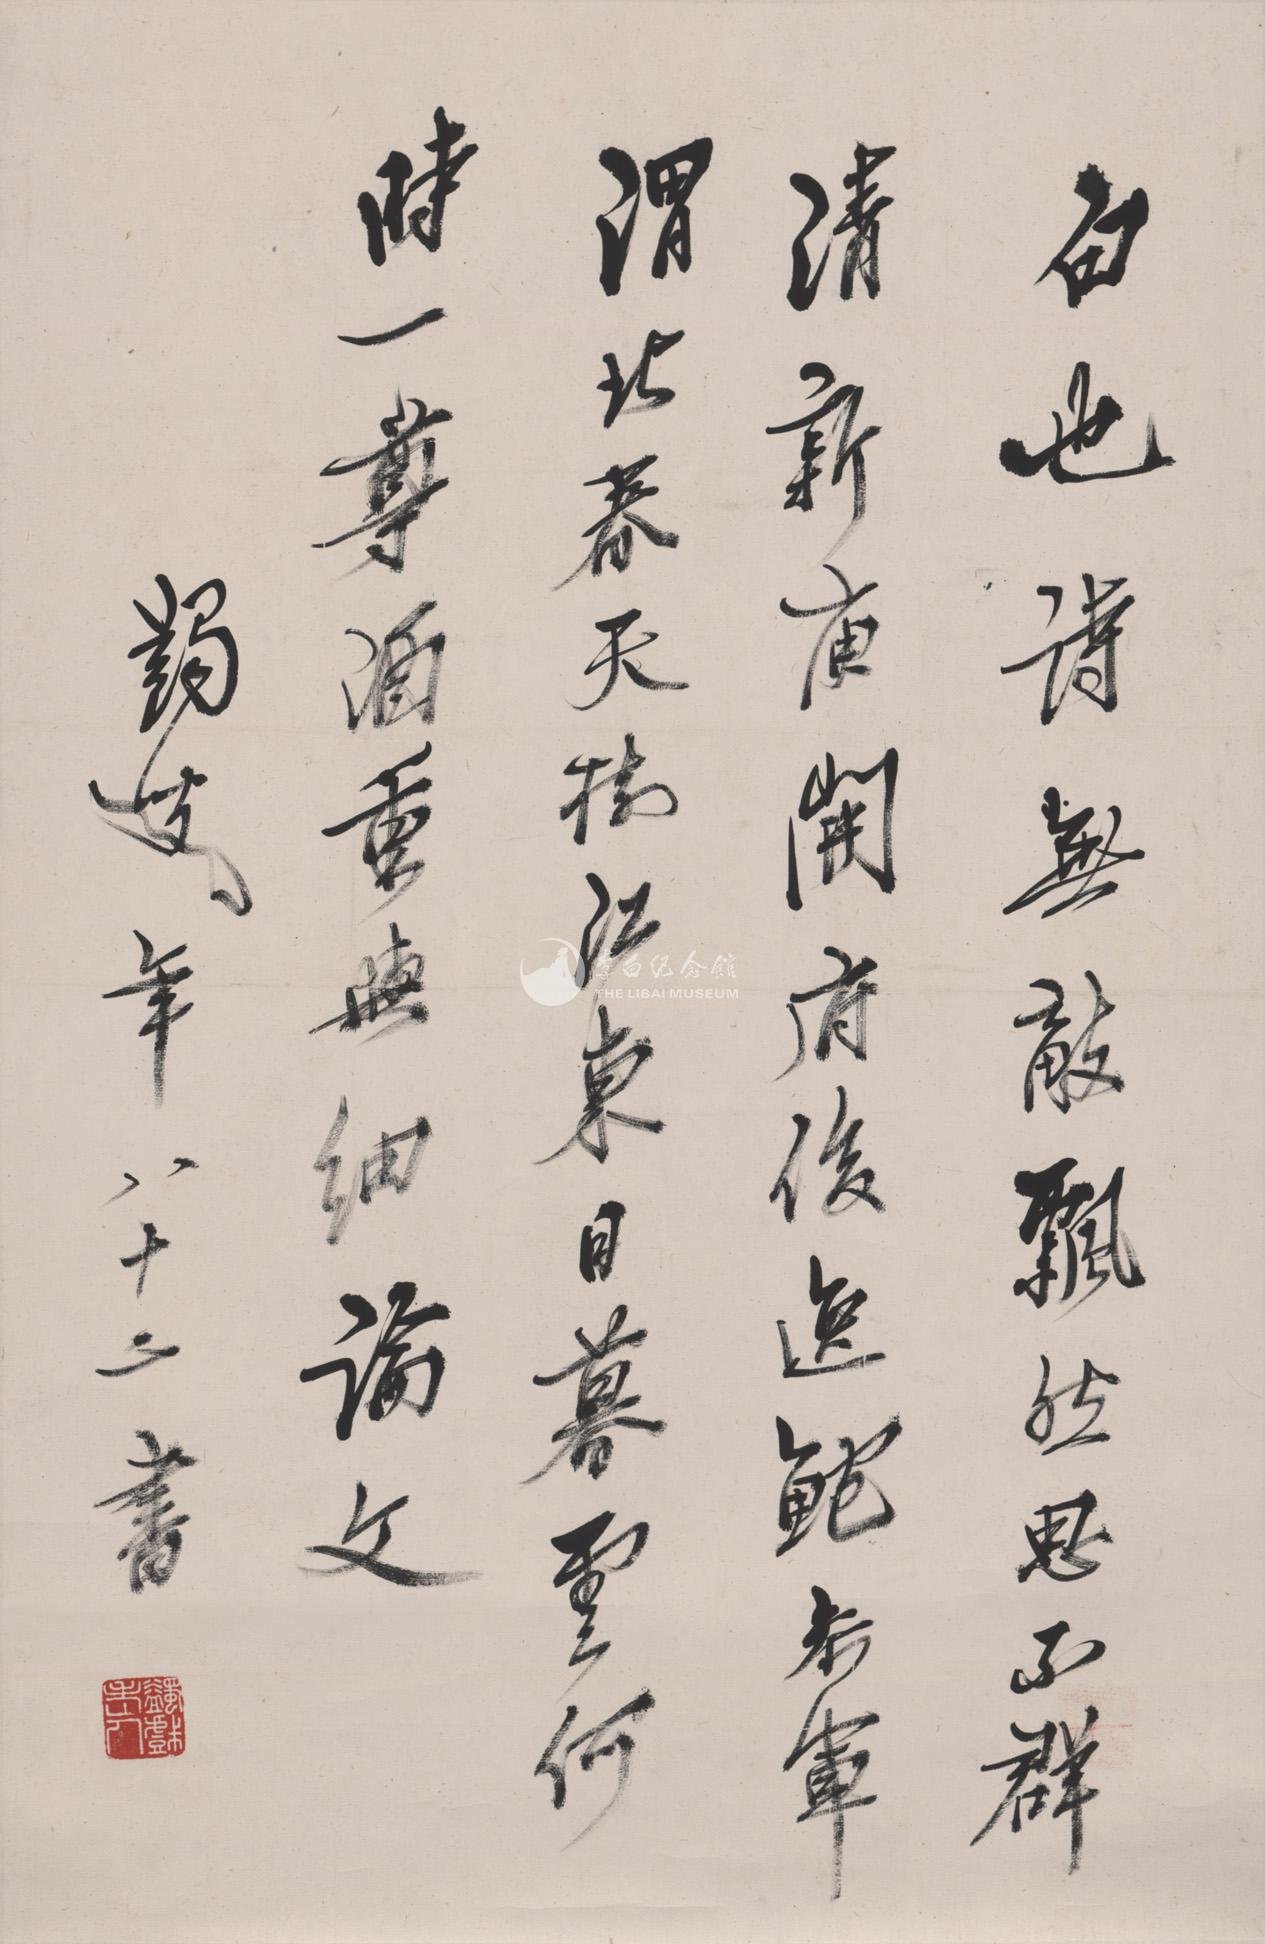 白也詩無敵飄然思不群
清新庾開府俊逸鮑參軍
渭北春天樹江東日暮雲何
時一尊酒重與細論文
蠲叟年八十二書
蠲戲老人
李白紀念館
THE LIBAI MUSEUM